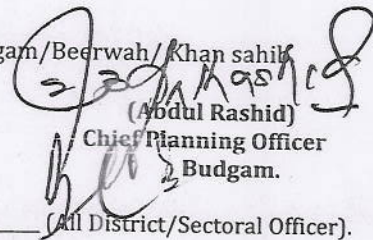 gam/Beerwah/Khan sahib
(Abdul Rashid)
Chief Planning Officer
Budgam.
(All District/Sectoral Officer).